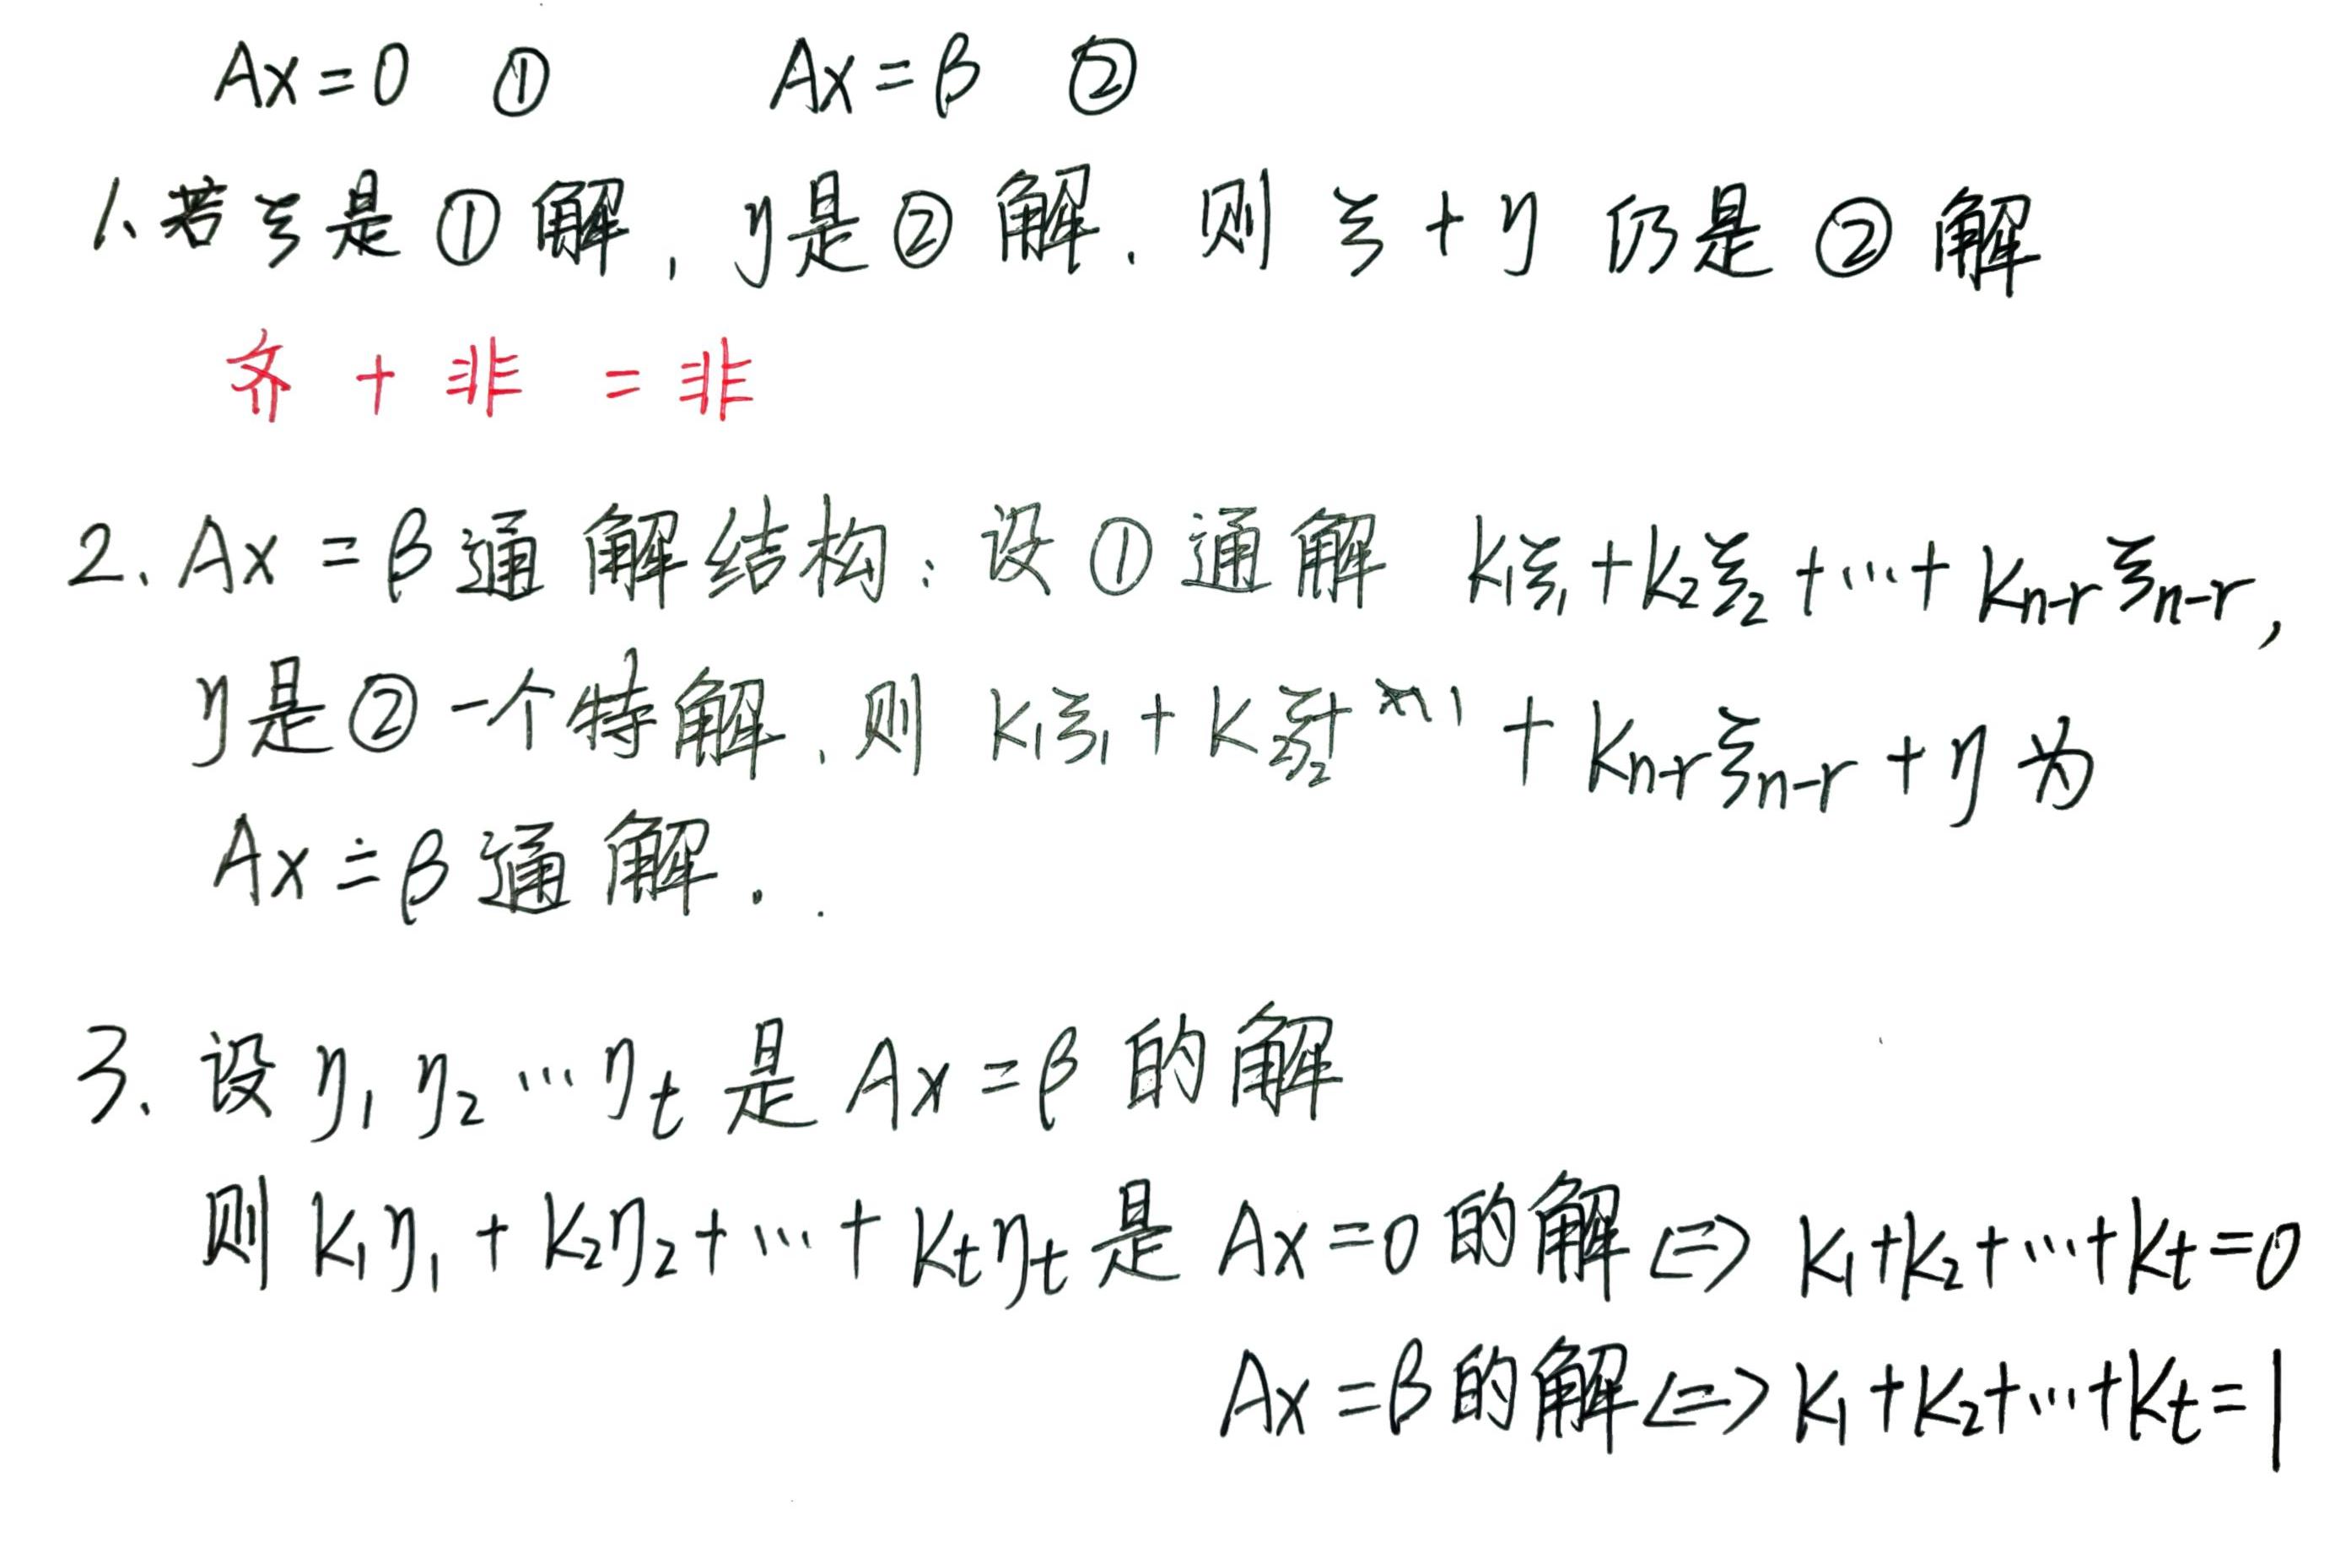 Ax=0 ① Ax=β ②
1、若ξ是①解，η是②解，则 ξ+η 仍是②解
齐 + 非 = 非
2、Ax=β通解结构：设①通解 k₁ξ₁+k₂ξ₂+…+kₙ₋ᵣξₙ₋ᵣ，
η是②一个特解，则 k₁ξ₁+k₂ξ₂+…+kₙ₋ᵣξₙ₋ᵣ+η为
Ax=β通解.
3、设η₁ η₂…ηₜ是Ax=β的解
则k₁η₁+k₂η₂+…+kₜηₜ是Ax=0的解<=>k₁+k₂+…+kₜ=0
Ax=β的解<=>k₁+k₂+…+kₜ=1